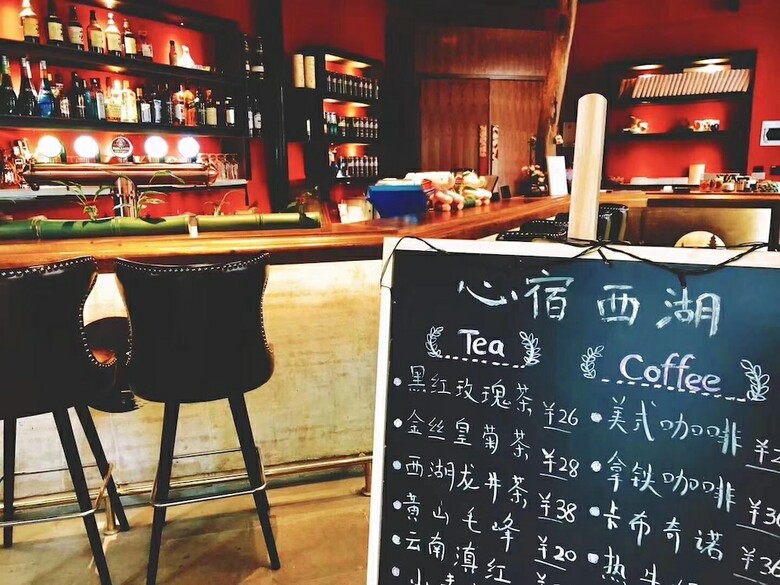 心宿西湖
Tea
黑红玫瑰茶 ¥26
金丝皇菊茶 ¥28
西湖龙井茶 ¥38
黄山毛峰 ¥20
云南滇红
Coffee
美式咖啡
拿铁咖啡
卡布奇诺